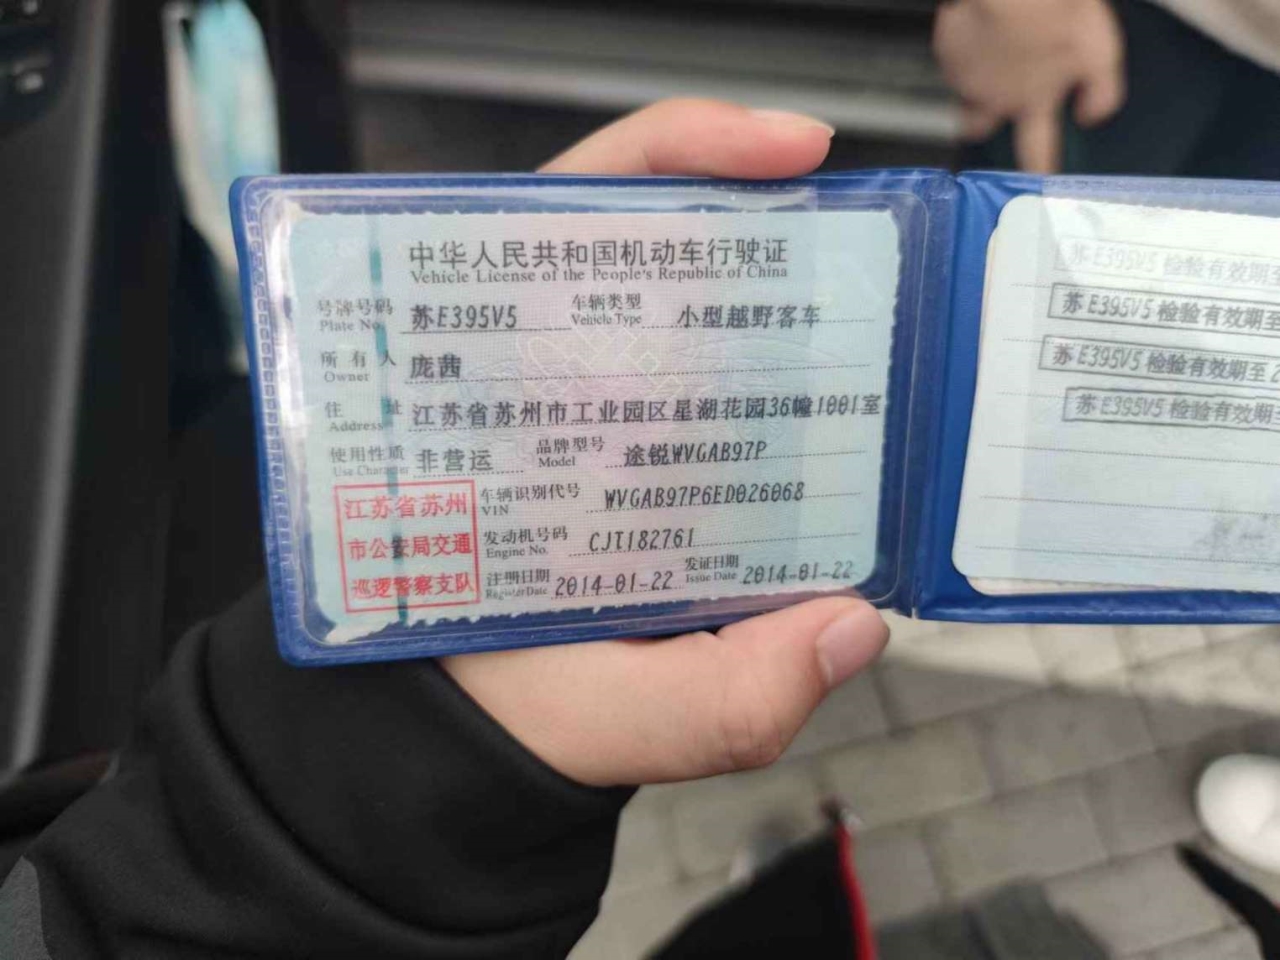 中华人民共和国机动车行驶证
Vehicle License of the People's Republic of China
号牌号码 苏E395V5 车辆类型 小型越野客车
Plate No. Vehicle Type
所有人 庞茜
Owner
住址 江苏省苏州市工业园区星湖花园36幢1001室
Address
使用性质 非营运 品牌型号 途锐WVGAB97P
Use Character Model
江苏省苏州
市公安局交通
巡逻警察支队
车辆识别代号 WVGAB97P6ED026068
VIN
发动机号码 CJT182761
Engine No.
注册日期 2014-01-22 发证日期 2014-01-22
Register Date Issue Date
苏E395V5 检验有效期至
苏E395V5 检验有效期至
苏E395V5 检验有效期至 2
苏E395V5 检验有效期至